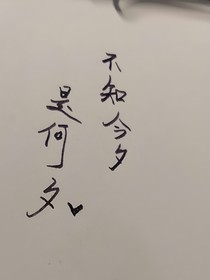 不知今夕
是何夕